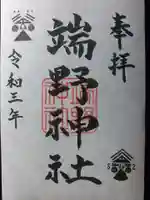 奉拝
端野神社
令和三年